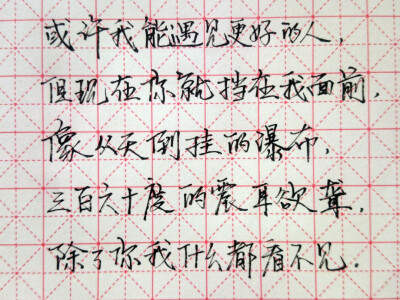 或许我能遇见更好的人，
但现在你就挡在我面前，
像从天倒挂的瀑布，
三百六十度的震耳欲聋，
除了你我什么都看不见．